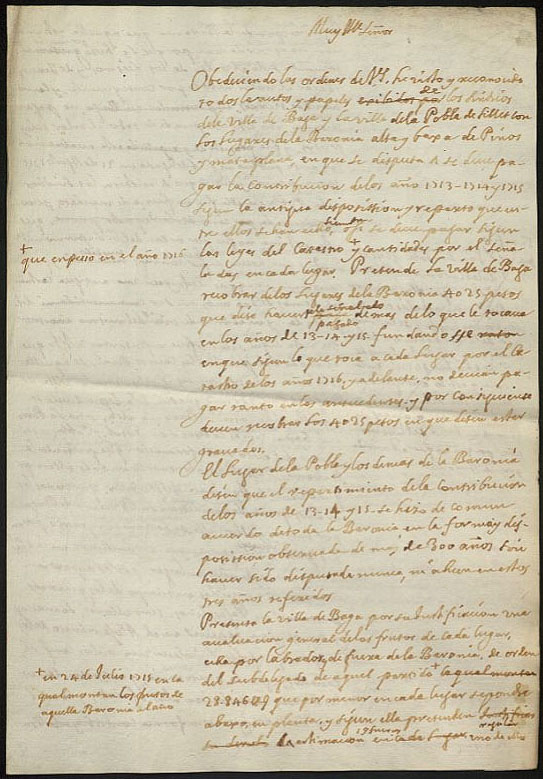 Muy Ille Señor
Obedeciendo las ordenes de V.S. he visto y reconocido
todos le autos y papeles de los sindicos
dela Villa de Baga y la villa dela Pobla de Lillet con
Los Lugares dela Baronia alta y baxa de Pinos
y mataplana, en que se disputa si se deve pa-
gar la Contribucion delos año 1713-1714 y 1715
segun la antigua disposission y reparto que en-
tre ellos se han echo, o se deve pagar segun
las leyes del Catastro + y cantidades por el seña-
ladas en cada lugar. Pretende la villa de Baga
+
que enpeso en el año 1716
recobrar delos Lugares dela Baronia 4025 pesos
que dise haver pagado demas delo que le tocava
en los años de 13-14 y 15. fundando
en que segun lo que toca a cada lugar por el Ca-
tastro delos años 1716, y adelante, no devian pa-
gar tanto en los antecedentes, y por consiguiente
deven recobrar los 4025 pesos en que disen estar
gravados.
El Lugar dela Pobla y los demas dela Baronia
disen que el repartimiento dela Contribucion
delos años de 13-14 y 15. se hizo de comun
acuerdo de toda la Baronia en la forma y dis-
posission observada de mas de 300 años sin
haver sido disputada nunca, ni ahun en estos
tres años referidos
Presenta la villa de Baga por su Justificacion una
avaluacion general delos frutos de cada lugar,
echa por labradores de fuera dela Baronia, de orden
del Subdelegado de aquel partido + la qual montan
+ en 24 de Julio 1715 en la
qual montan los frutos de
aquella Baronia al año
28-846 que por menor en cada lugar se pondra
abaxo, en planta, y segun ella pretenden
regular
la estimacion en cada uno de ellos